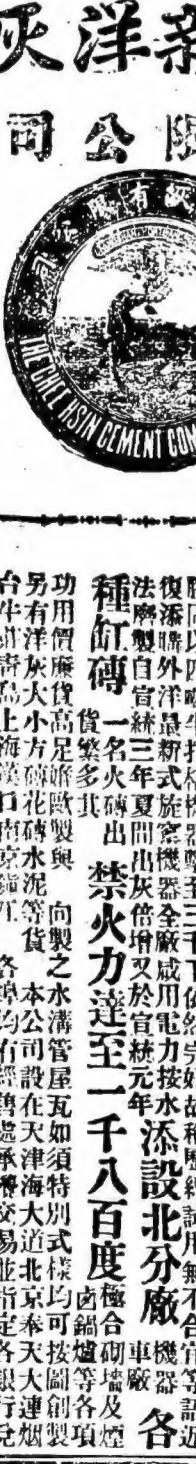 洋灰
限公司
有限公司
THE CHEE HSIN CEMENT COM
試用無不合宜等語近
復添聯外洋最新式旋窰機器全廠咸用電力按水
法磨製自宣統三年夏間出灰倍增又於宣統元年添設北分廠 機器車廠 各
種缸磚 一名火磚出貨繁多其 禁火力達至一千八百度 極合砌墻及煙卤鍋爐等各項
功用價廉貨高足媲歐製與 向製之水溝管屋瓦如須特別式樣均可按圖創製
另有洋灰大小方磚花磚水泥等貨 本公司設在天津海大道北京奉天大連烟
台牛莊青島上海漢口南京鎮江 各埠均有經售處承攬交易並指定各銀行兌